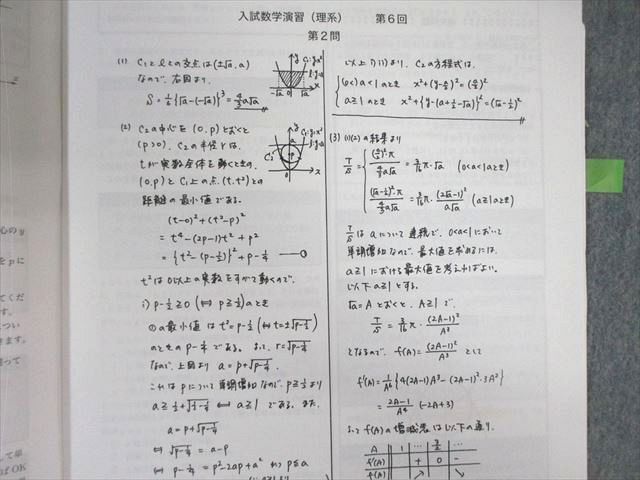 入試数学演習（理系）　第6回
第2問
(1) C₁とℓとの交点は (±√a, a)
なので、右図より、
S = 1/6 {√a-(-√a)}³ = 4/3 a√a
(2) C₂の中心を (0, p) とおくと
(p>0)、C₂の半径は、
tが実数全体を動くときの、
(0, p) と C₁上の点 (t, t²) との
距離の最小値である。
(t-0)² + (t²-p)²
= t⁴ - (2p-1)t² + p²
= {t² - (p-1/2)}² + p - 1/4 ―①
t²は0以上の実数をすべて動くので、
i) p-1/2 ≧ 0 (⇔ p ≧ 1/2) のとき
①の最小値は t² = p-1/2 (⇔ t = ±√(p-1/2))
のときの p-1/4 である。よって、r = √(p-1/4)
なので、上図より a = p+√(p-1/4)
これは pについて単調増加なので、p≧1/2より
a ≧ 1/2 + √(1/2-1/4) ⇔ a≧1 である。また、
a = p+√(p-1/4)
⇔ √(p-1/4) = a-p
⇔ p-1/4 = p²-2ap+a² かつ p≦a
以上i)ii)より、C₂の方程式は、
0<a<1のとき x²+(y-a/2)² = (a/2)²
a≧1のとき x²+{y-(a+1/2-√a)}² = (√a-1/2)²
(3) (1)(2)の結果より
T/S = (a/2)²·π / (4/3 a√a) = 3/16 π·√a (0<a<1のとき)
(√a-1/2)²·π / (4/3 a√a) = 3/16 π·(2√a-1)²/(a√a) (a≧1のとき)
T/S は aについて連続で、0<a<1において
単調増加なので、最大値を求めるには、
a≧1における最大値を考えればよい。
以下 a≧1とする。
√a = A とおくと、A≧1で、
T/S = 3/16 π·(2A-1)²/A³
となるので、f(A) = (2A-1)²/A³ として
f'(A) = 1/A⁶ {4(2A-1)A³ - (2A-1)²·3A²}
= (2A-1)/A⁴ (-2A+3)
よって f(A)の増減表は以下の通り。
A 1 … 3/2 …
f'(A) + 0 -
f(A) ↗ ↘